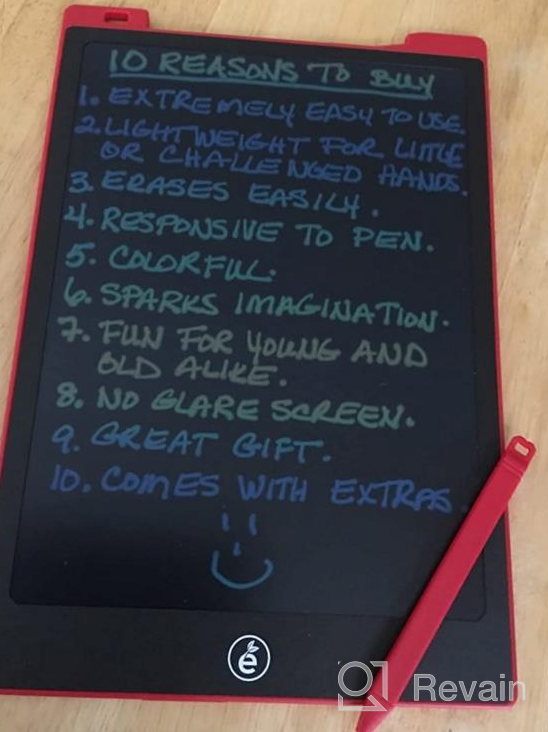 10 REASONS TO BUY
1. EXTREMELY EASY TO USE.
2. LIGHTWEIGHT FOR LITTLE
OR CHALLENGED HANDS.
3. ERASES EASILY.
4. RESPONSIVE TO PEN.
5. COLORFUL.
6. SPARKS IMAGINATION.
7. FUN FOR YOUNG AND
OLD ALIKE.
8. NO GLARE SCREEN.
9. GREAT GIFT.
10. COMES WITH EXTRAS.
e
Revain